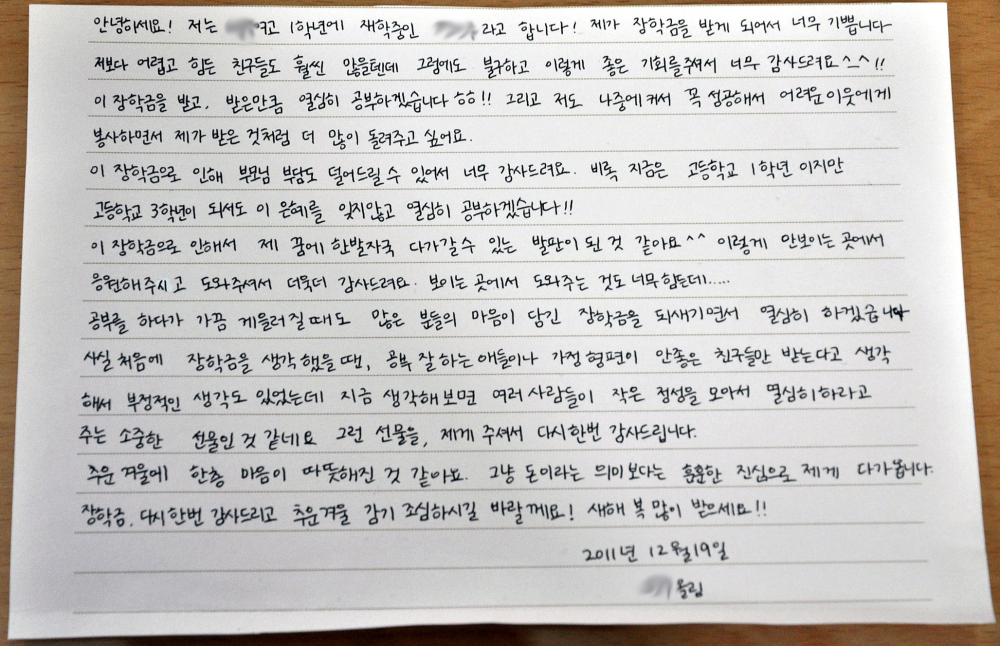 안녕하세요! 저는 여고 1학년에 재학중인 라고 합니다! 제가 장학금을 받게 되어서 너무 기쁩니다
저보다 어렵고 힘든 친구들도 훨씬 많을텐데 그럼에도 불구하고 이렇게 좋은 기회를주셔서 너무 감사드려요^_^!!
이 장학금을 받고, 받은만큼 열심히 공부하겠습니다 ㅎㅎ!! 그리고 저도 나중에커서 꼭 성공해서 어려운이웃에게
봉사하면서 제가 받은 것처럼 더 많이 돌려주고 싶어요.
이 장학금으로 인해 부모님 부담도 덜어드릴 수 있어서 너무 감사드려요. 비록 지금은 고등학교 1학년 이지만
고등학교 3학년이 되서도 이 은혜를 잊지않고 열심히 공부하겠습니다!!
이 장학금으로 인해서 제 꿈에 한발자국 다가갈 수 있는 발판이 된 것 같아요^^ 이렇게 안보이는 곳에서
응원해주시고 도와주셔서 더욱더 감사드려요. 보이는 곳에서 도와주는 것도 너무힘든데.....
공부를 하다가 가끔 게을러질때도 많은 분들의 마음이 담긴 장학금을 되새기면서 열심히 하겠습니다
사실 처음에 장학금을 생각했을 땐, 공부 잘 하는 애들이나 가정형편이 안좋은 친구들만 받는다고 생각
해서 부정적인 생각도 있었는데 지금 생각해보면 여러 사람들이 작은 정성을 모아서 열심히하라고
주는 소중한 선물인 것 같네요 그런 선물을, 제게 주셔서 다시한번 감사드립니다.
추운 겨울에 한층 마음이 따뜻해진 것 같아요. 그냥 돈이라는 의미보다는 훈훈한 진심으로 제게 다가옵니다.
장학금, 다시한번 감사드리고 추운겨울 감기 조심하시길 바랄께요! 새해 복 많이 받으세요!!
2011년 12월19일
올림